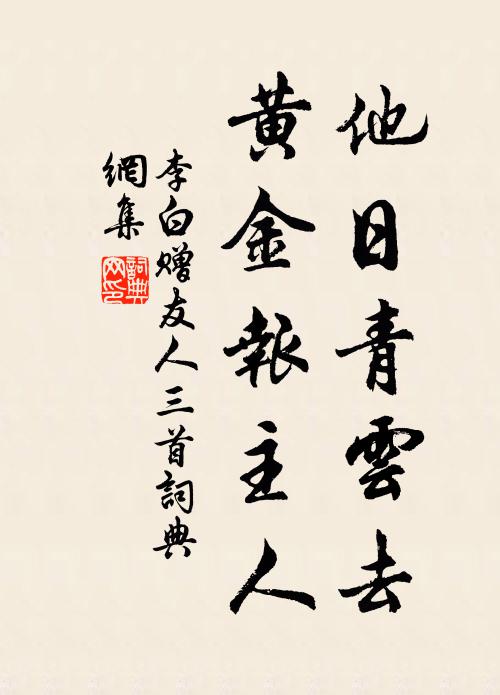 他日青雲去
黃金報主人
李白贈友人三首詞典
網集
詞典網印